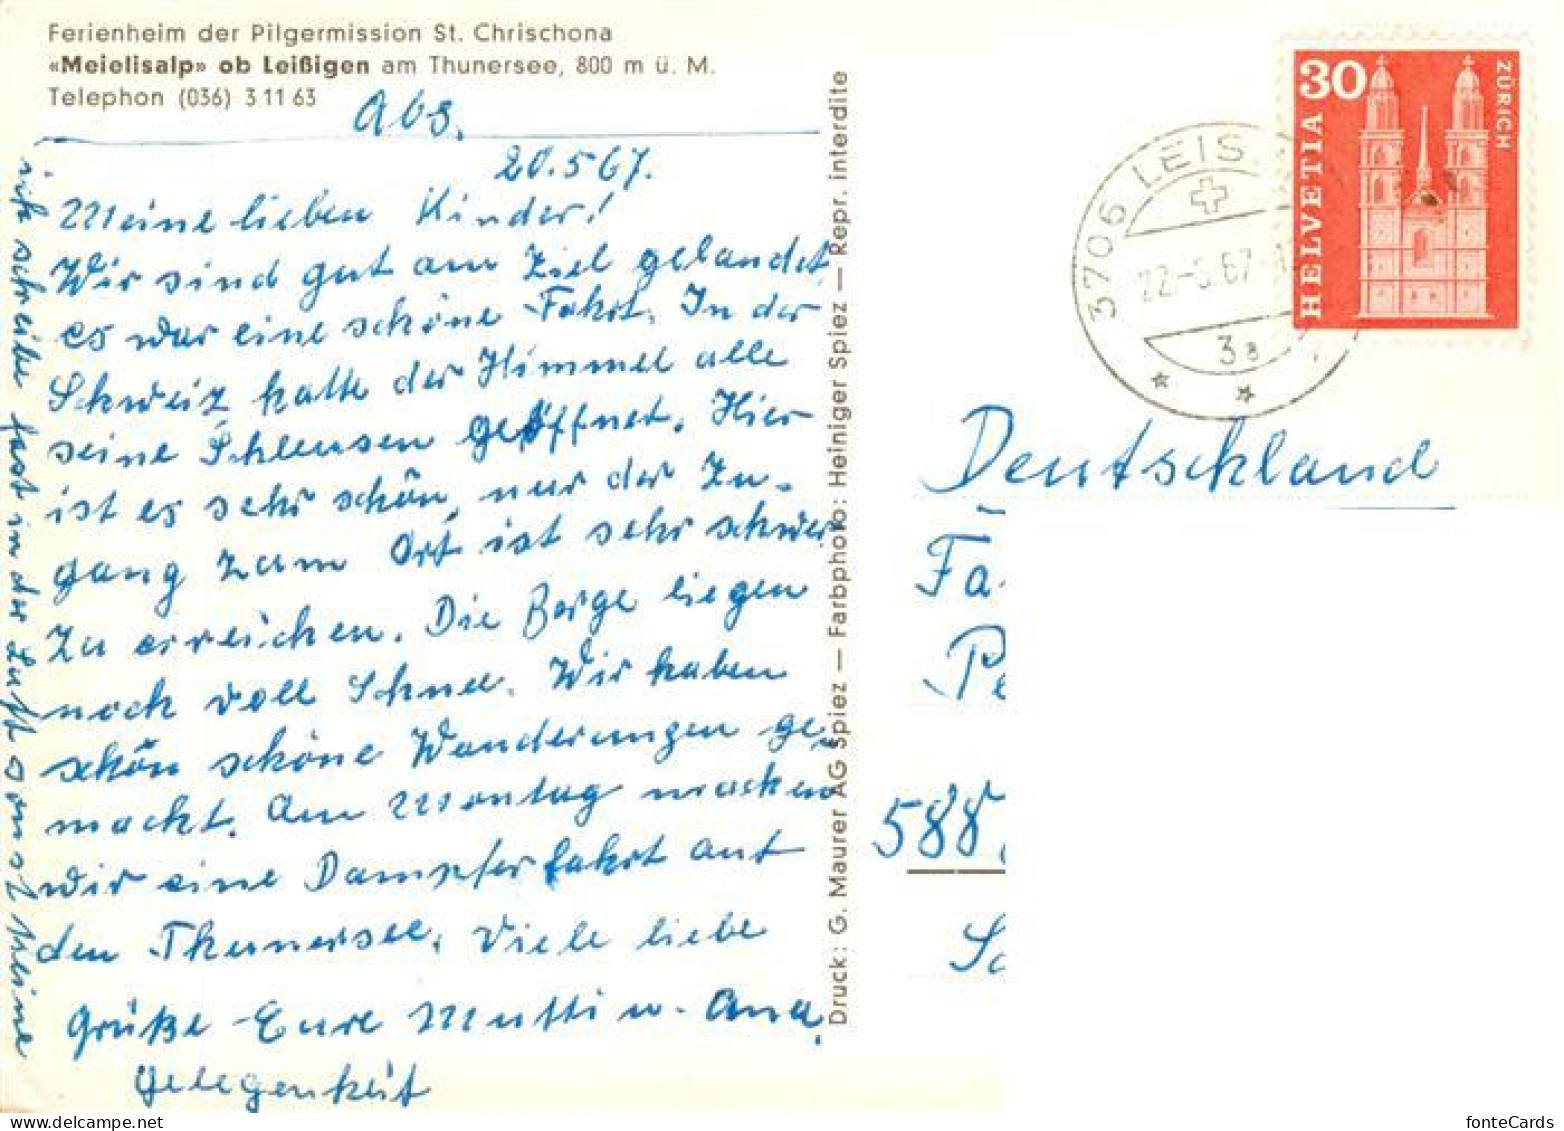 Ferienheim der Pilgermission St. Chrischona
«Meielisalp» ob Leißigen am Thunersee, 800 m ü. M.
Telephon (036) 3 11 63
Abs.
20.5 67.
Meine lieben Kinder!
Wir sind gut am Ziel gelandet,
es war eine schöne Fahrt. In der
Schweiz hatte der Himmel alle
seine Schleusen geöffnet. Hier
ist es sehr schön, nur der Zu-
gang zum Ort ist sehr schwer
zu erreichen. Die Berge liegen
noch voll Schnee. Wir haben
schön schöne Wanderungen ge-
macht. Am Montag machen
wir eine Dampferfahrt auf
den Thunersee. Viele liebe
Grüße Eure Mutti u. Anna.
ich schreibe fast in der Luft sonst keine
Gelegenheit
Druck: G. Maurer AG Spiez — Farbphoto: Heiniger Spiez — Repr. interdite
3706 LEIS
22.-5.67
3a
30
HELVETIA
ZÜRICH
Deutschland
Fa
Pe
588
So
fonteCards
www.delcampe.net